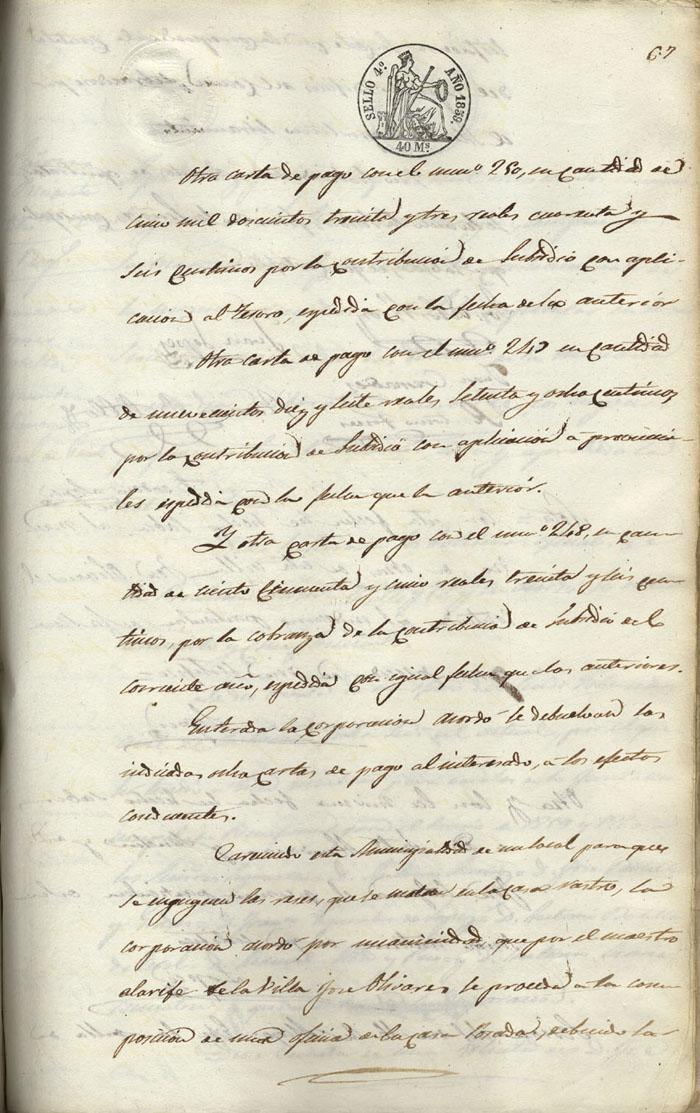 67
SELLO 4º AÑO 1859.
40 Ms
Otra carta de pago con el numº 250, en cantidad de
cinco mil doscientos treinta y tres reales cuarenta y
seis centimos por la contribucion de Subsidio con apli-
cacion al Tesoro, espedida con la fecha de la anterior
Otra carta de pago con el numº 249 en cantidad
de nuevecientos diez y siete reales setenta y ocho centimos,
por la contribucion de Subsidio con aplicacion a provincia-
les espedida con la fecha que la anterior.
Y otra carta de pago con el numº 248, en can-
tidad de ciento cincuenta y cinco reales treinta y seis cen-
timos, por la cobranza de la contribucion de Subsidio del
corriente año, espedida con igual fecha que las anteriores.
Enterada la corporacion acordó se debuelvan las
indicadas ocho cartas de pago al interesado, a los efectos
conducentes.
Careciendo esta Municipalidad de un local para que
se enjuguen las reses, que se matan en la casa rastro, la
corporacion acordó por unanimidad, que por el maestro
alarife de la Villa José Olivares se proceda a la com-
posicion de una oficina de la casa Posada, debiendo